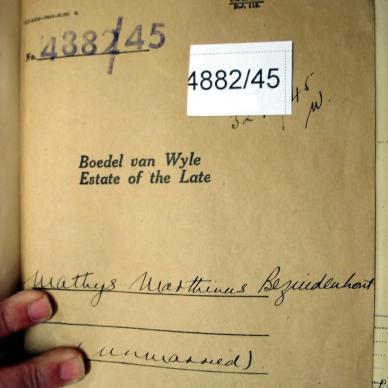 D.J. 118.
No. 4882/45
4882/45
Boedel van Wyle
Estate of the Late
Mathys Marthinus Bezuidenhout
(unmarried).